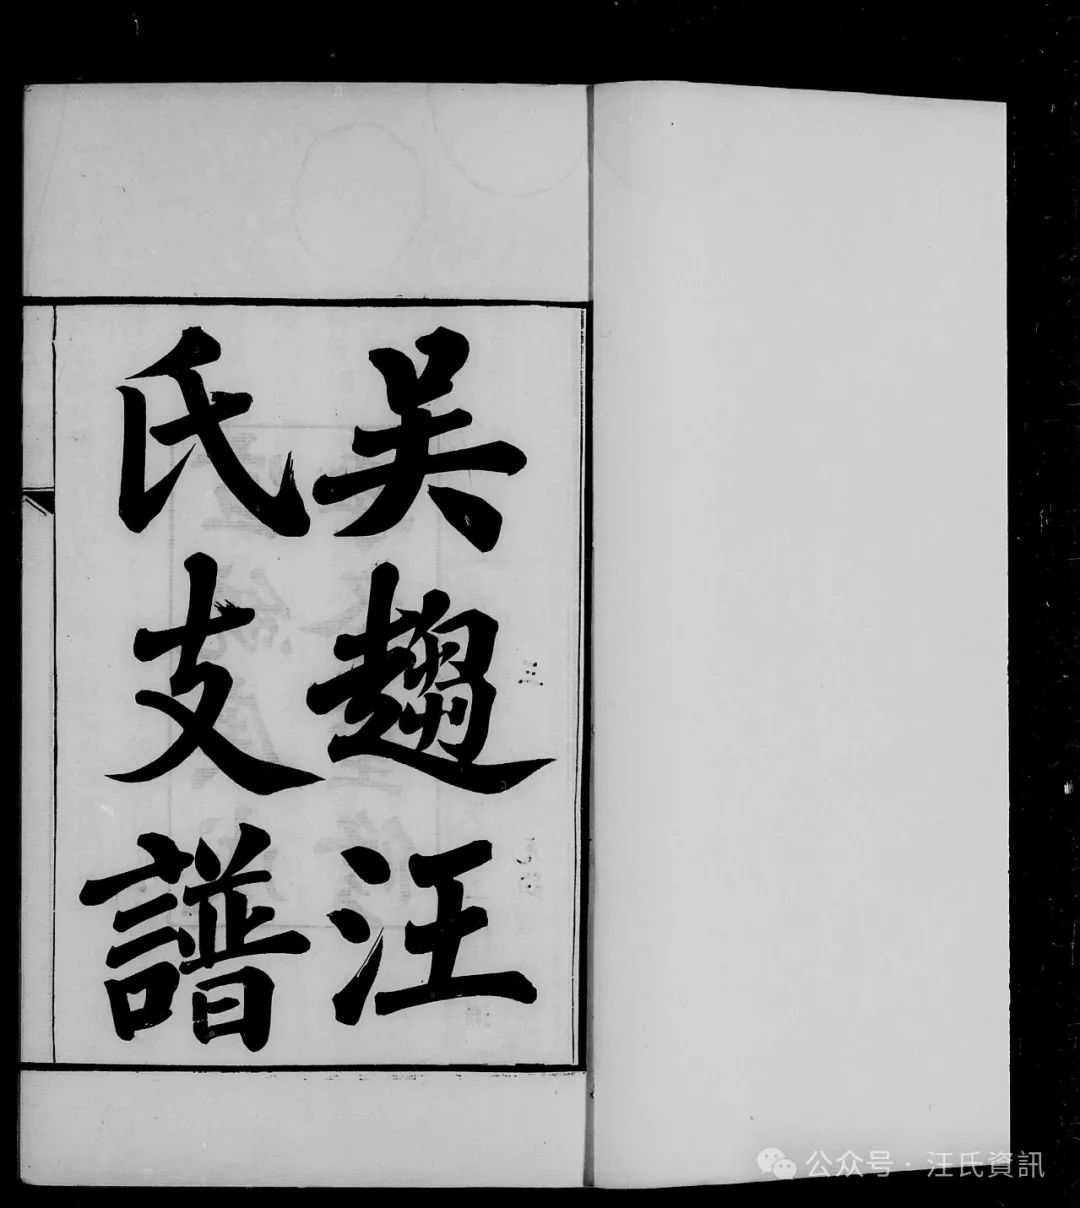 吴趨汪
氏支譜
公众号 · 汪氏資訊